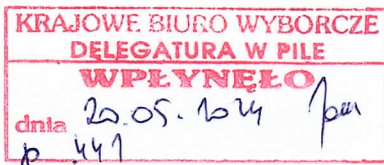 KRAJOWE BIURO WYBORCZE
DELEGATURA W PILE
WPŁYNĘŁO
dnia 20.05.2024
p 441